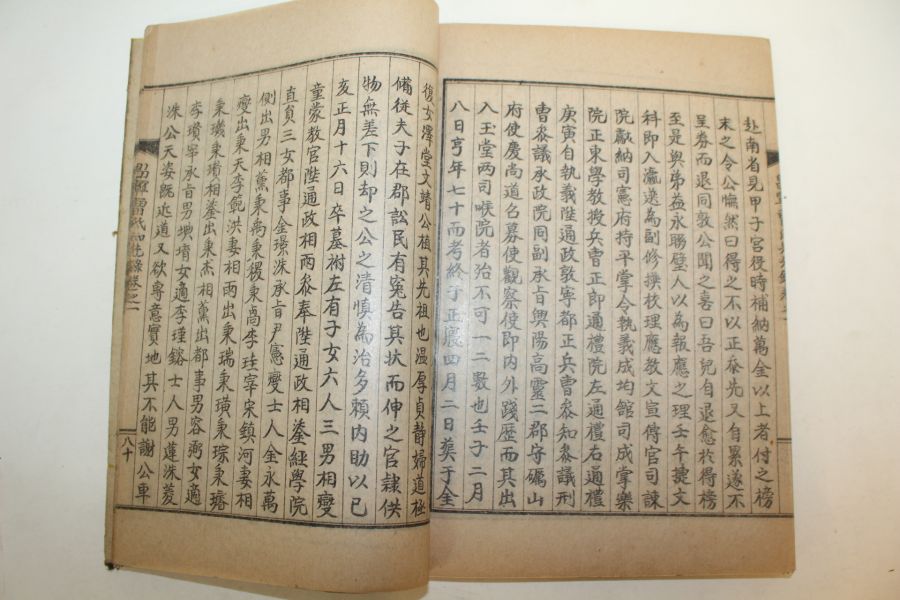 赴南省見甲子宮役時補納萬金以上者付之榜
末之令公憮然曰得之不以正奈先又自累遂不
呈券而退同敦公聞之喜曰吾兒自退愈於得榜
至是與弟益永聯璧人以為報應之理壬午捷文
科即入瀛選為副修撰校理應教文宣傳官司諫
院獻納司憲府持平掌令執義成均館司成掌樂
院正東學教授兵曹正郎通禮院左通禮右通禮
庚寅自執義陞通政敦寧都正兵曹叅知叅議刑
曹叅議承政院同副承旨興陽高靈二郡守礪山
府使慶尚道召募使觀察使即內外踐歷而其出
入玉堂兩司喉院者治不可一二數也壬子二月
八日亨年七十而考終于正寢四月二日葬于金
復女澤堂文靖公植其先祖也温厚貞静婦道極
備從夫子在郡訟民有寃告其狀而伸之官隷供
物無差下則却之公之清慎為治多賴內助以已
亥正月十六日卒墓祔左有子女六人三男相燮
童蒙教官陞通政相兩叅奉陞通政相鎣經學院
直負三女都事金璟洙承旨尹憲燮士人金永萬
側出男相薰秉禹秉稷秉卨李珪宰宋鎮河妻相
燮出秉天李範洪妻相兩出秉瑞秉璜秉琮秉璿
秉璣秉瓆相鎣出秉杰相薰出都事男容弼女適
李瓆宰承旨男㙉堉女適李瑾鎔士人男蓮洙菱
洙公天姿旣近道又欲專意實地其不能謝公車
八十